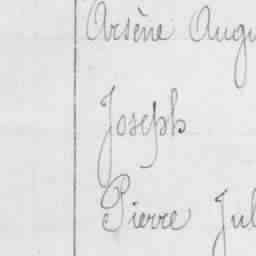 Arsène Augu
Joseph
Pierre Jul